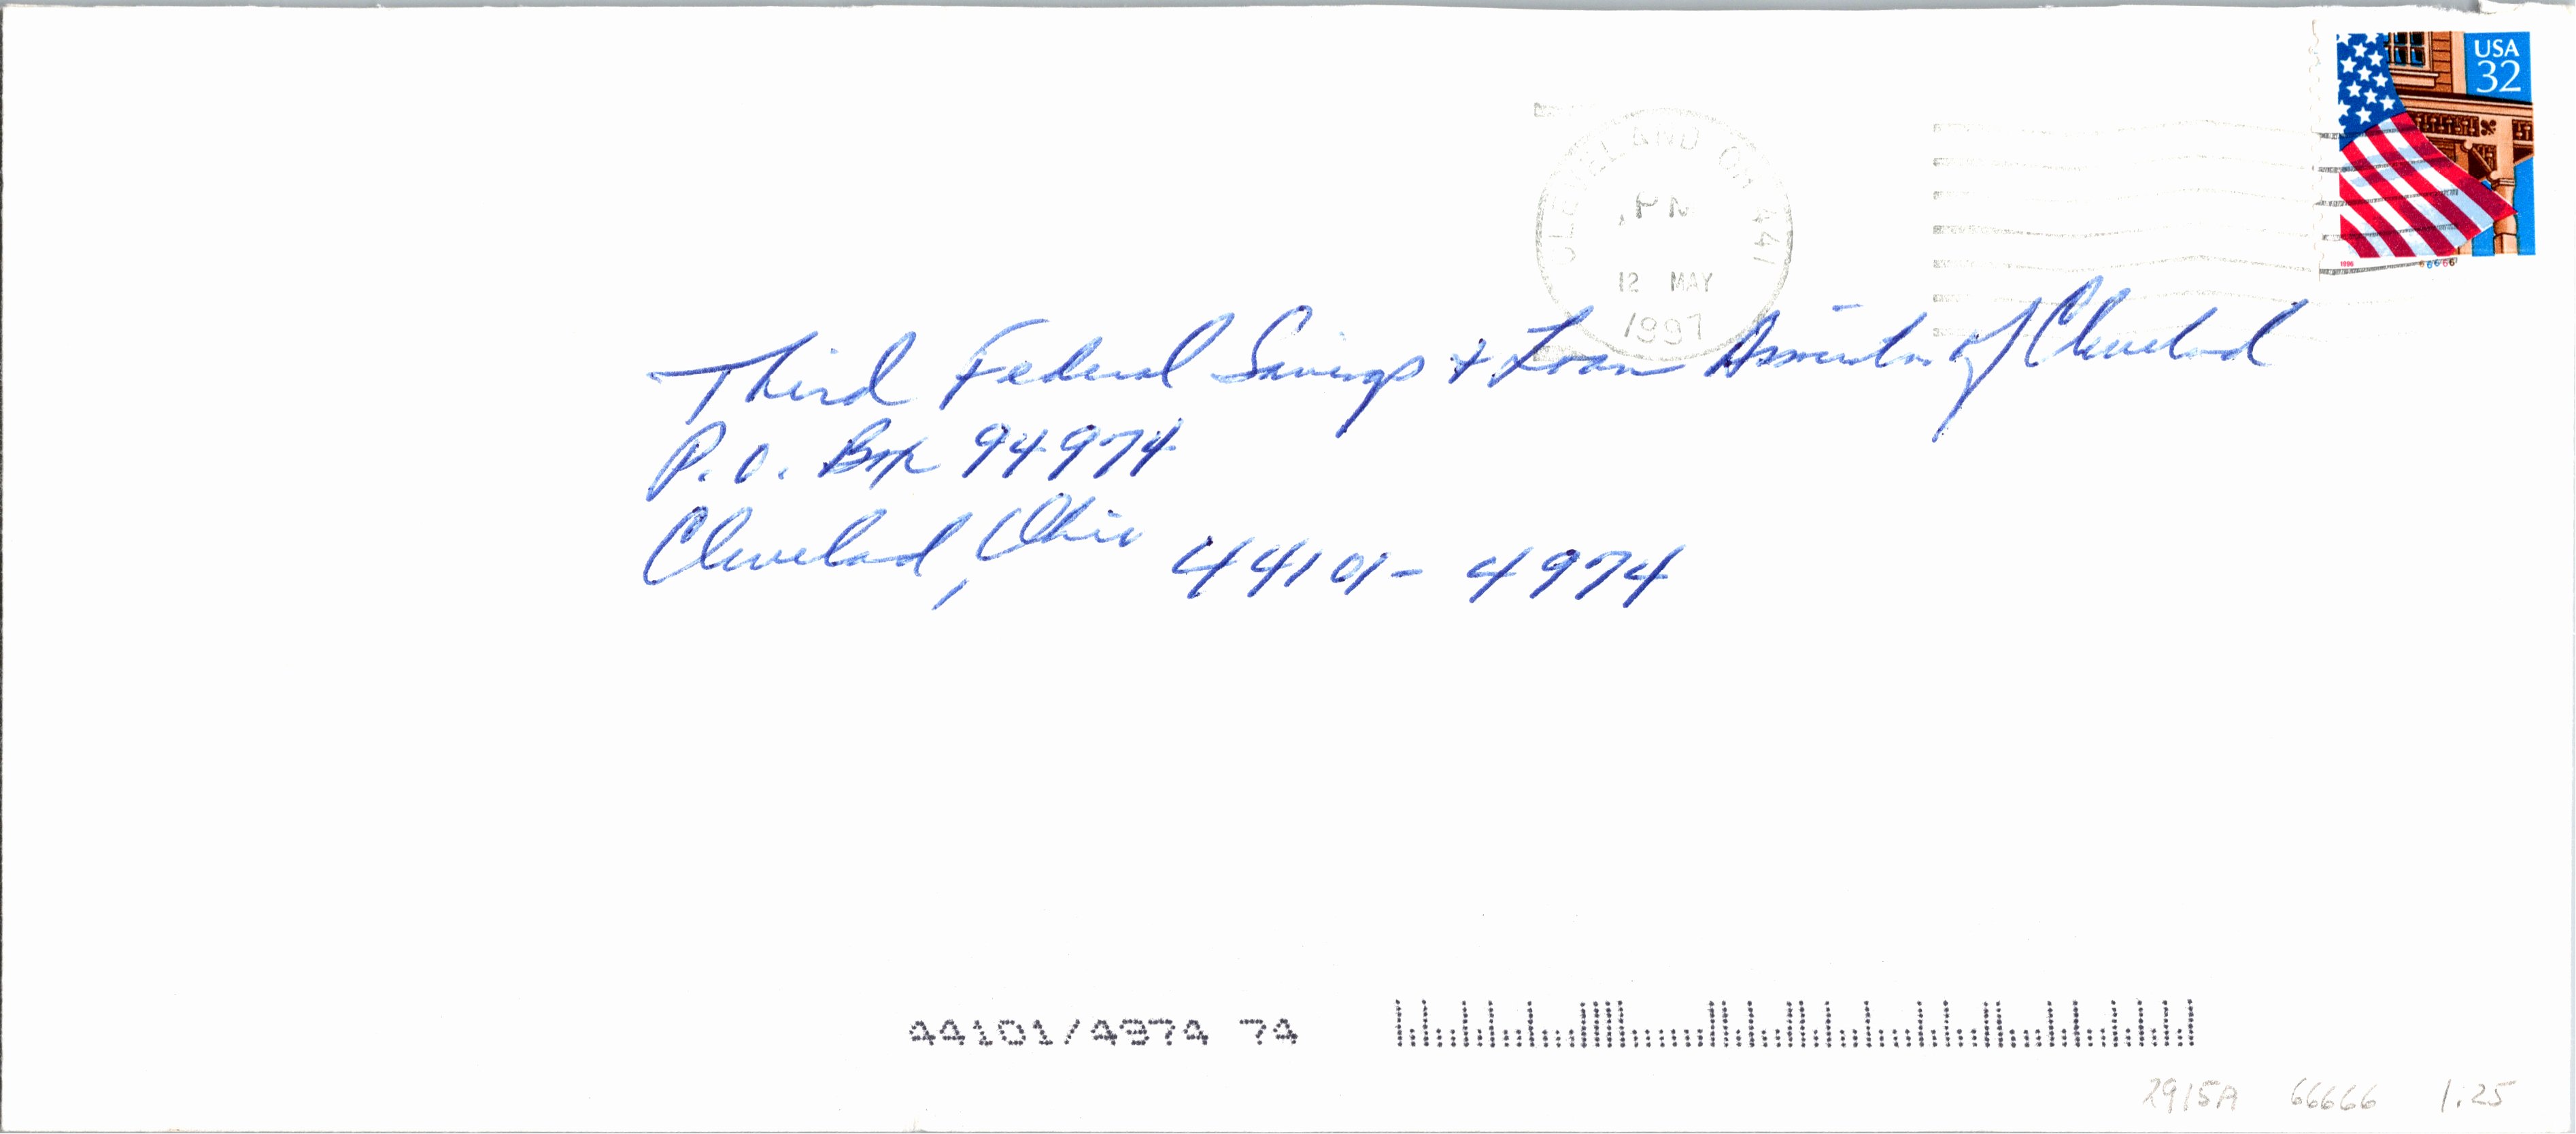 USA
32
CLEVELAND OH 441
PM
12 MAY
1997
1996 66666
Third Federal Savings + Loan Association of Cleveland
P.O. Box 94974
Cleveland, Ohio 44101-4974
44101/4974 74
2915A 66666 1.25